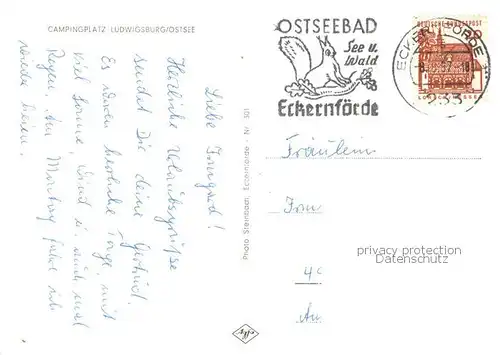 CAMPINGPLATZ LUDWIGSBURG/OSTSEE
Liebe Irmgard!
Herzliche Urlaubsgrüße
sendet Dir deine Gertrud.
Es waren herrliche Tage, mit
viel Sonne, Wind u. auch mal
Regen. Am Montag fahre ich
wieder heim.
Photo Steinbadt, Eckernförde - Nr. 301
Agfa
OSTSEEBAD
See u.
Wald
Eckernförde
DEUTSCHE BUNDESPOST
20
ECKERNFÖRDE 1
233
Fräulein
Irm
privacy protection
Datenschutz